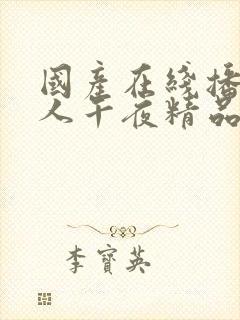 國產在綫播
人午夜精品
李寶英